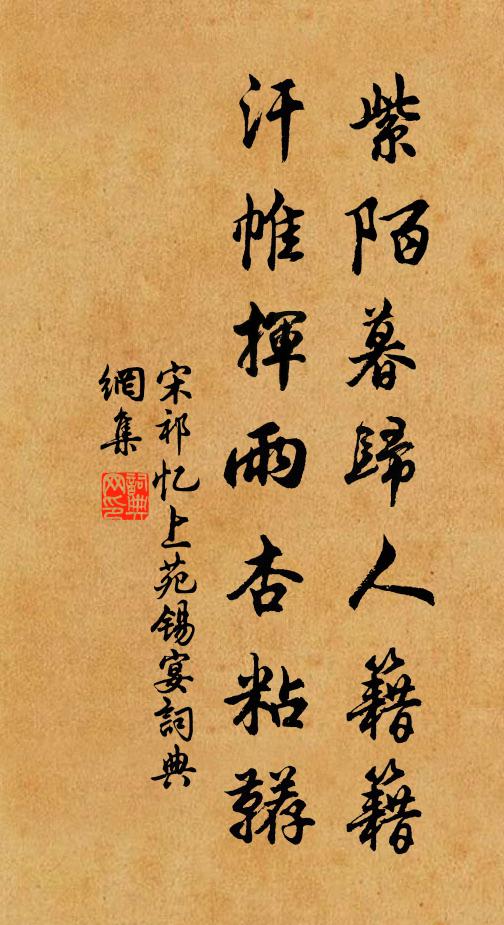 紫陌暮歸人籍籍
汗帷揮雨杏粘韉
宋祁忆上苑锡宴詞典
網集
詞典
网印